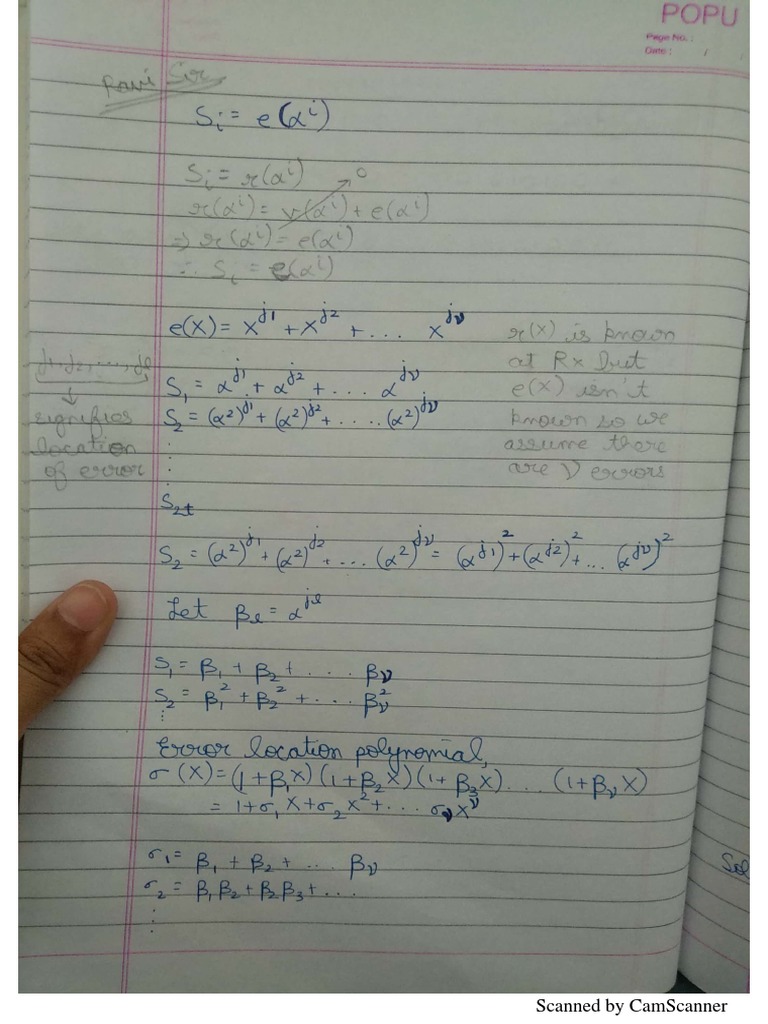 POPU
Page No. :
Date : / /
Ravi Sir
Sᵢ = e(αⁱ)
Sᵢ = r(αⁱ)
r(αⁱ) = v(αⁱ) + e(αⁱ) → 0
⇒ r(αⁱ) = e(αⁱ)
∴ Sᵢ = e(αⁱ)
e(X) = X^j1 + X^j2 + .... X^jν
r(X) is known
at Rx but
e(X) isn't
known so we
assume there
are ν errors
j1, j2, ..., jl
↓
signifies
location
of error
S₁ = α^j1 + α^j2 + .... α^jν
S₂ = (α²)^j1 + (α²)^j2 + ..... (α²)^jν
⋮
S₂ₜ
S₂ = (α²)^j1 + (α²)^j2 + .... (α²)^jν = (α^j1)² + (α^j2)² + ... (α^jν)²
Let βₗ = α^jl
S₁ = β₁ + β₂ + .... βν
S₂ = β₁² + β₂² + .... βν²
⋮
Error location polynomial,
σ(X) = (1+β₁X)(1+β₂X)(1+β₃X).... (1+βνX)
= 1+σ₁X+σ₂X²+.... σνX^ν
σ₁ = β₁ + β₂ + .... βν
σ₂ = β₁β₂ + β₂β₃ + ....
⋮
Sol
Scanned by CamScanner